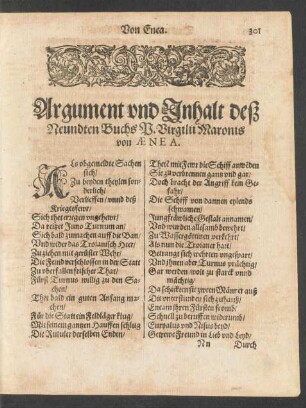 Von Enea.
301
Argument vnd Inhalt deß
Neundten Buchs P. Virgilii Maronis
von ÆNEA.
ALs obgemeldte Sachen
sich/
Zu beyden theylen son-
derlich/
Verlieffen/ vnnd deß
Kriegtsfewr/
Sich thet erregen vngehewr/
Da reitzet Juno Turnum an/
Sich bald zumachen auff die Ban/
Vnd wider das Troianisch Heer/
Zu ziehen mit gerüster Wehr/
Die Feind verschlossen in der Statt
Zu vberfallen frischer That/
Fürsz Turnus willig zu den Sa-
chen/
Thet bald ein guten Anfang ma-
chen/
Für die Statt ein Feldläger klug/
Mit seinem gantzen Hauffen schlug
Die Rutuler derselben Enden/
Theten mit Fewr die Schiff anwenden
Sie zu verbrennen gantz vnd gar/
Doch bracht der Angriff kein Ge-
fahr/
Die Schiff von dannen eylends
schwamen/
Jungfräwliche Gestalt annamen/
Vnd wurden allesamb bewehrt/
Zu Wassergöttinnen verkehrt/
Als nun die Troianer hart
Getrangt sich
Vnd ihnen aber Turnus prächtig/
Gar werden wolt zu starck vnnd
mächtig/
Da schickten sie zween Männer auß
Enean ihren Fürsten fromb/
Schnell zu beruffen widerumb/
Euryalus vnd Nisus beyd/
Getrewe Freund in Lieb vnd Leyd/
Nn
Durch